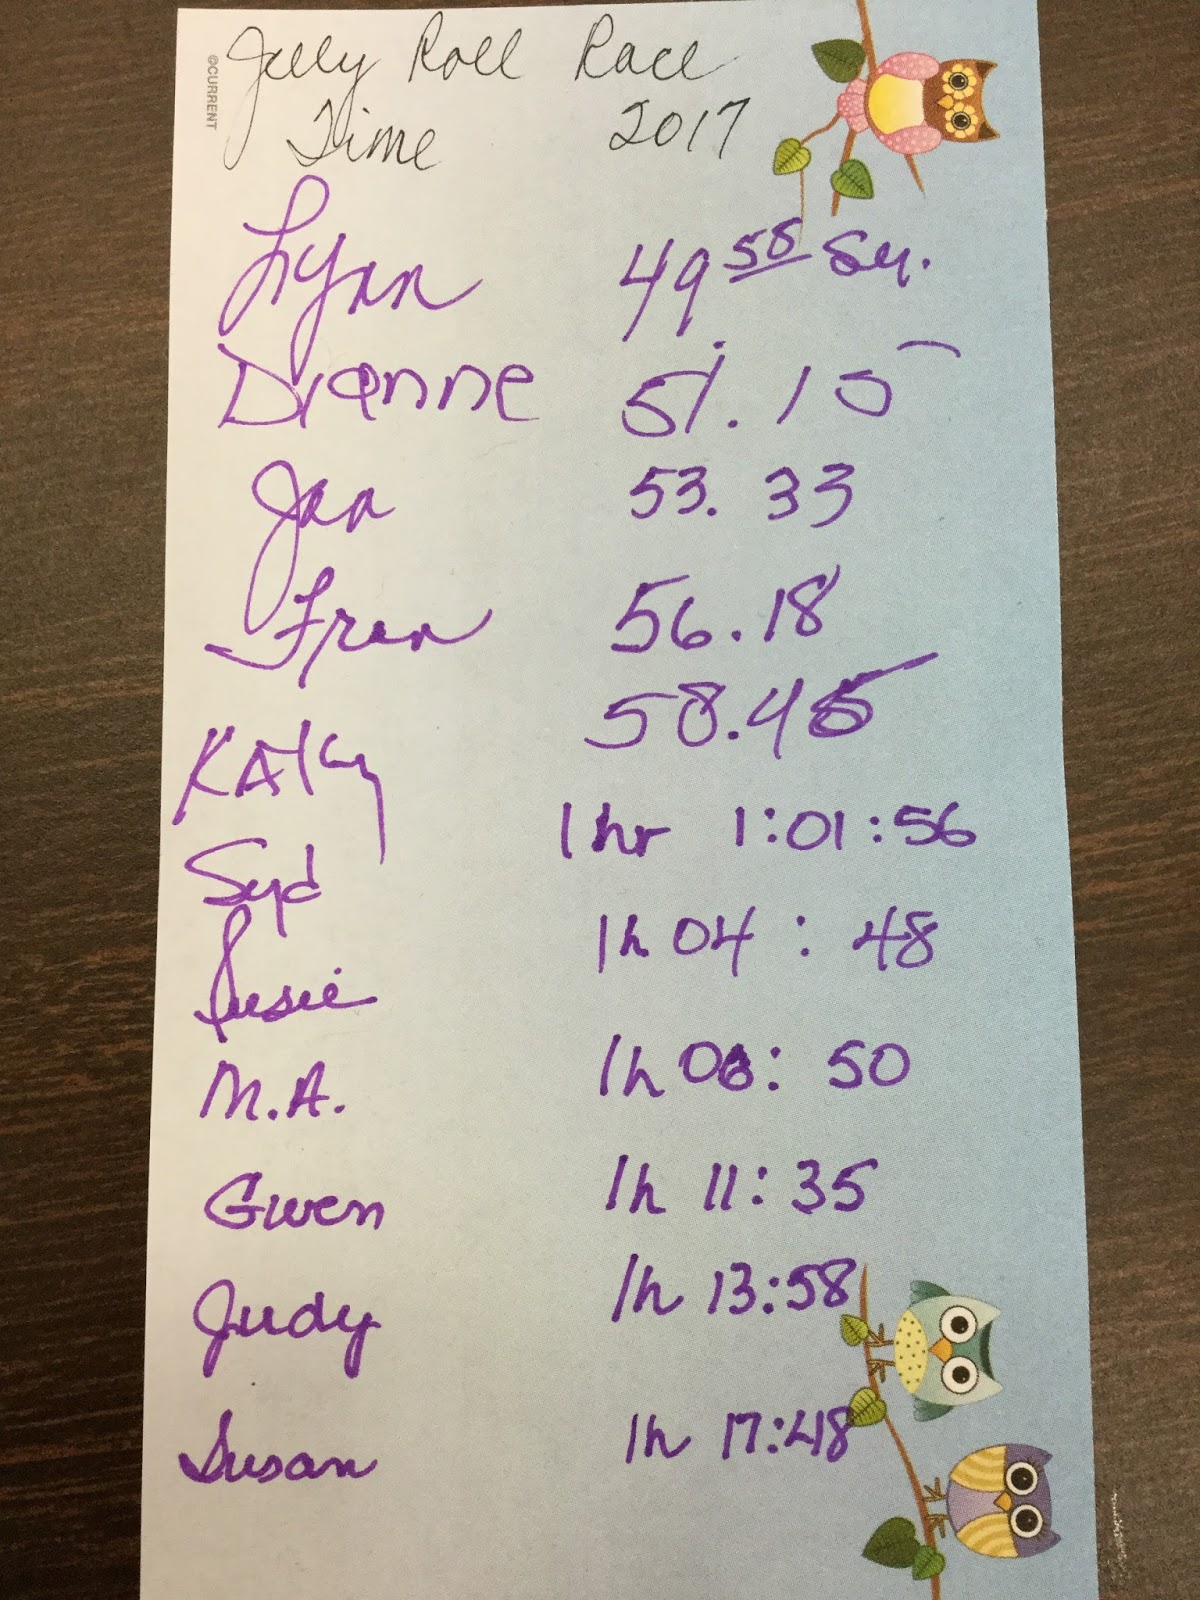 ©CURRENT
Jelly Roll Race
Time 2017
Lynn 49 58 Sec.
Dianne 51.15
Jan 53.33
Fran 56.18
KATHy 58.45
Syd 1hr 1:01:56
Susie 1h 04:48
M.A. 1h 06:50
Gwen 1h 11:35
Judy 1h 13:58
Susan 1h 17:48